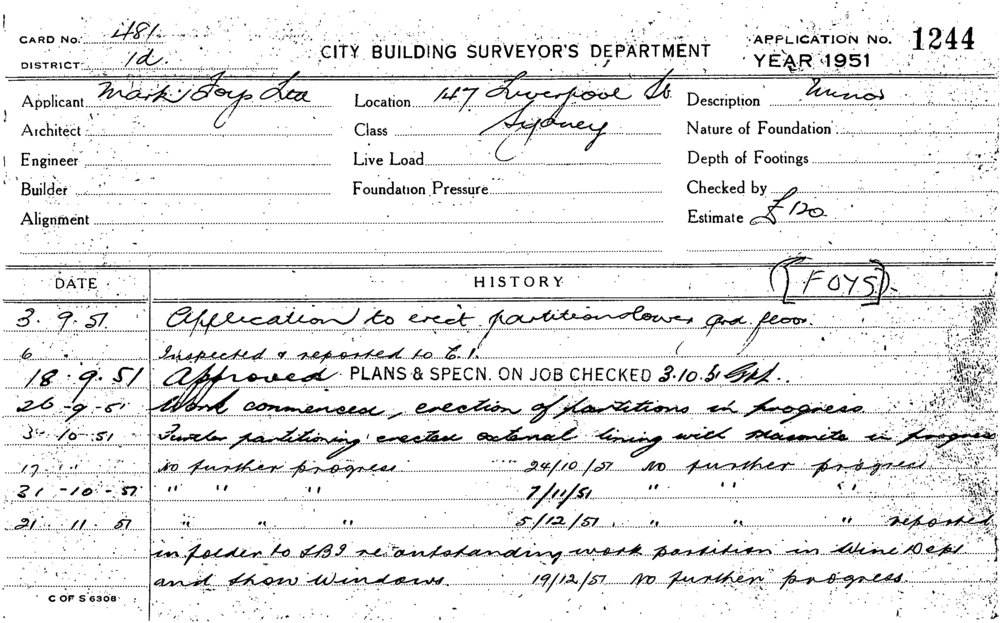 CARD No. 481.
DISTRICT 1d.
CITY BUILDING SURVEYOR'S DEPARTMENT
APPLICATION No. 1244
YEAR 1951
Applicant Mark Foys Ltd Location 147 Liverpool St Description Minor
Architect Class Sydney Nature of Foundation
Engineer Live Load Depth of Footings
Builder Foundation Pressure Checked by
Alignment Estimate £120
DATE HISTORY [FOYS]
3. 9. 51 Application to erect partition lower grd floor.
6 Inspected & reported to C.I.
18. 9. 51 Approved PLANS & SPECN. ON JOB CHECKED 3.10.51
26-9-51 Work commenced, erection of partitions in progress
3-10-51 Further partitioning erected external lining with Masonite in progress
17 " " No further progress 24/10/51 No further progress
31-10-51 " " " 7/11/51 " " "
21. 11. 51 " " " 5/12/51. " " " reported
in folder to SBI re outstanding work partition in Wine Dept
and Show Windows. 19/12/51 No further progress.
C OF S 6308